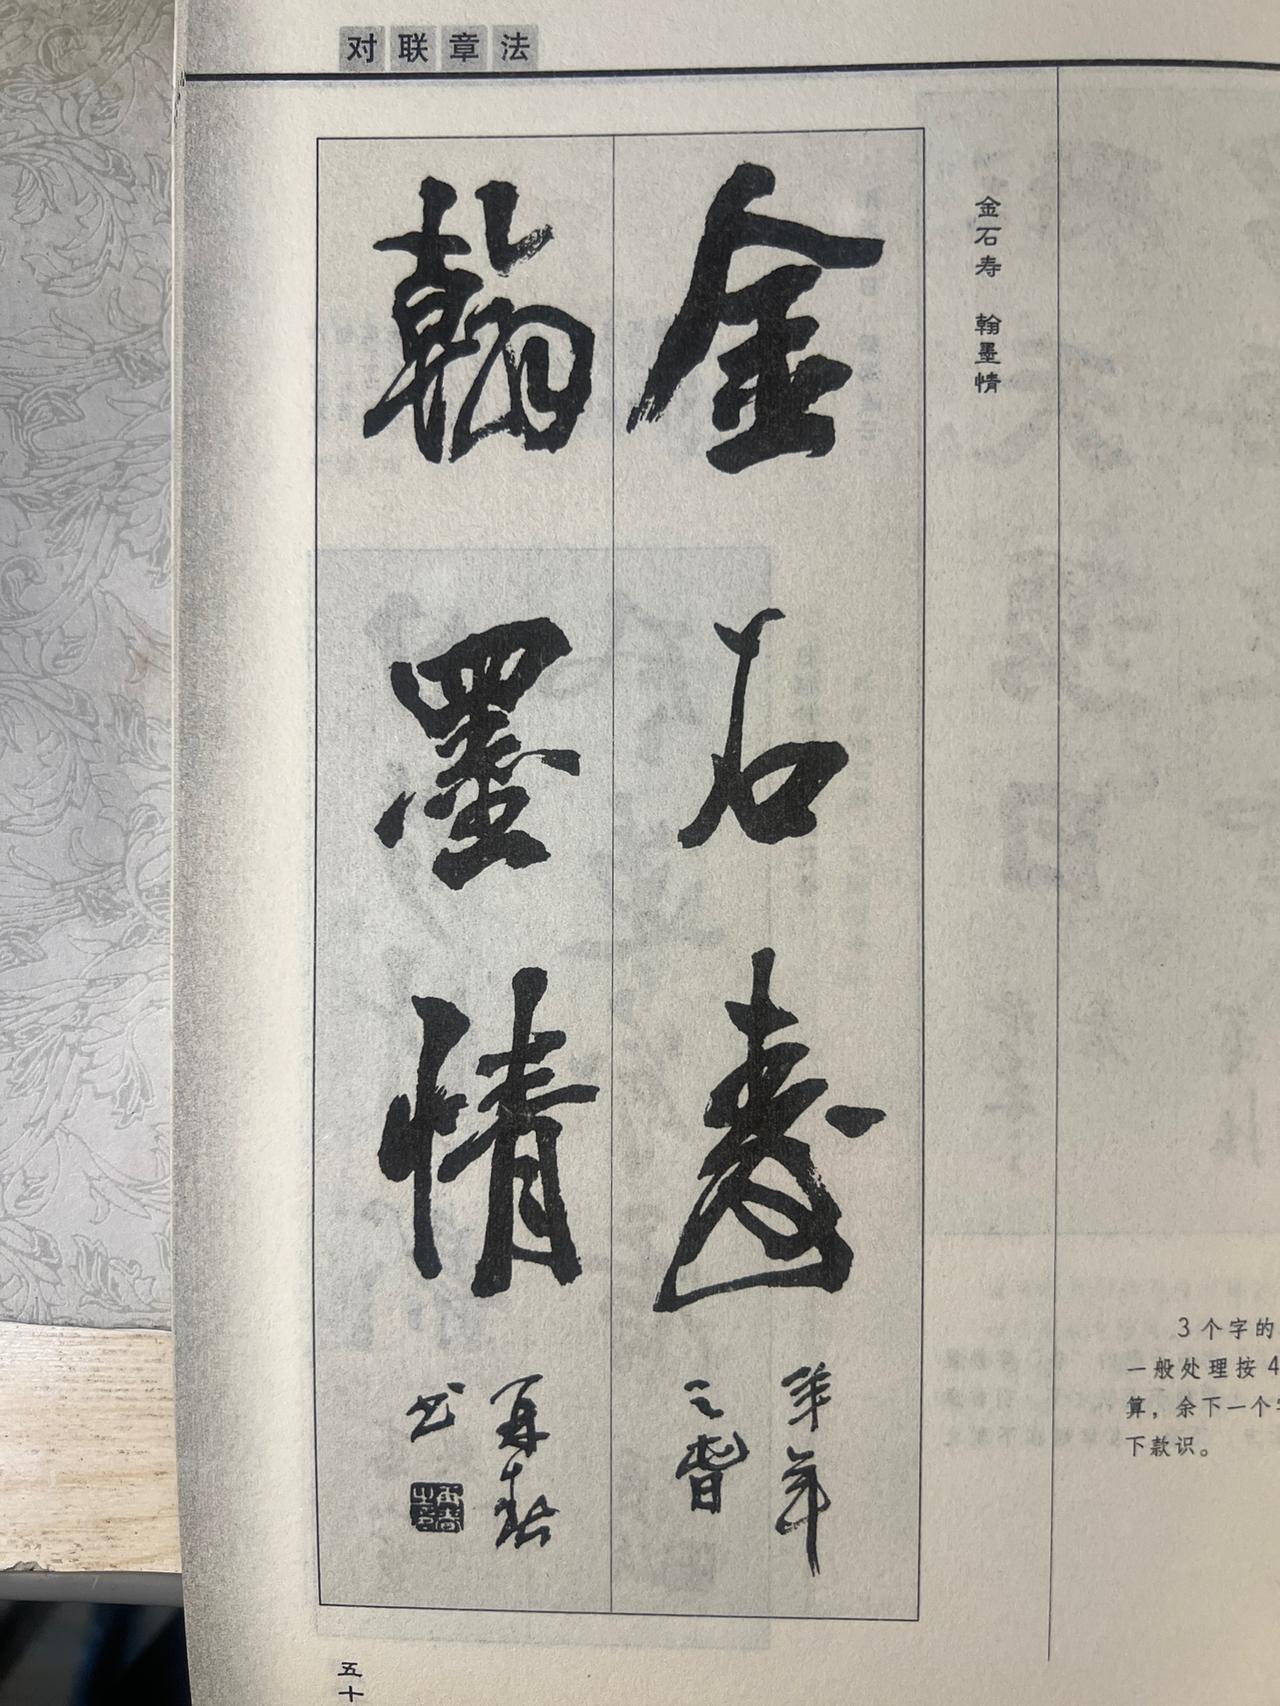 对联章法
金石寿 翰墨情
金石寿
羊年
之春
翰墨情
再春
书
3个字的
一般处理按4
算，余下一个字
下款识。
五十